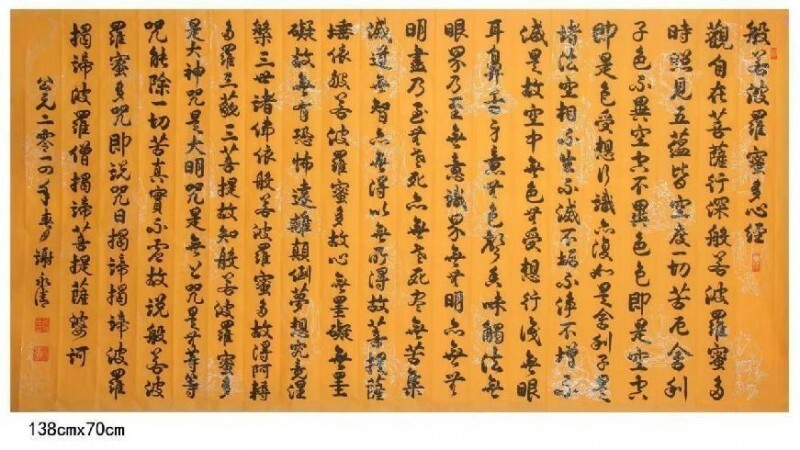 般若波羅蜜多心經
觀自在菩薩行深般若波羅蜜多
時照見五蘊皆空度一切苦厄舍利
子色不異空空不異色色即是空空
即是色受想行識亦復如是舍利子是
諸法空相不生不滅不垢不淨不增不
減是故空中無色無受想行識無眼
耳鼻舌身意無色聲香味觸法無
眼界乃至無意識界無無明亦無無
明盡乃至無老死亦無老死盡無苦集
滅道無智亦無得以無所得故菩提薩
埵依般若波羅蜜多故心無罣礙無罣
礙故無有恐怖遠離顛倒夢想究竟涅
槃三世諸佛依般若波羅蜜多故得阿耨
多羅三藐三菩提故知般若波羅蜜多
是大神咒是大明咒是無上咒是無等等
咒能除一切苦真實不虛故說般若波
羅蜜多咒即說咒曰揭諦揭諦波羅
揭諦波羅僧揭諦菩提薩婆訶
公元二零一四年春月謝永
138cmx70cm